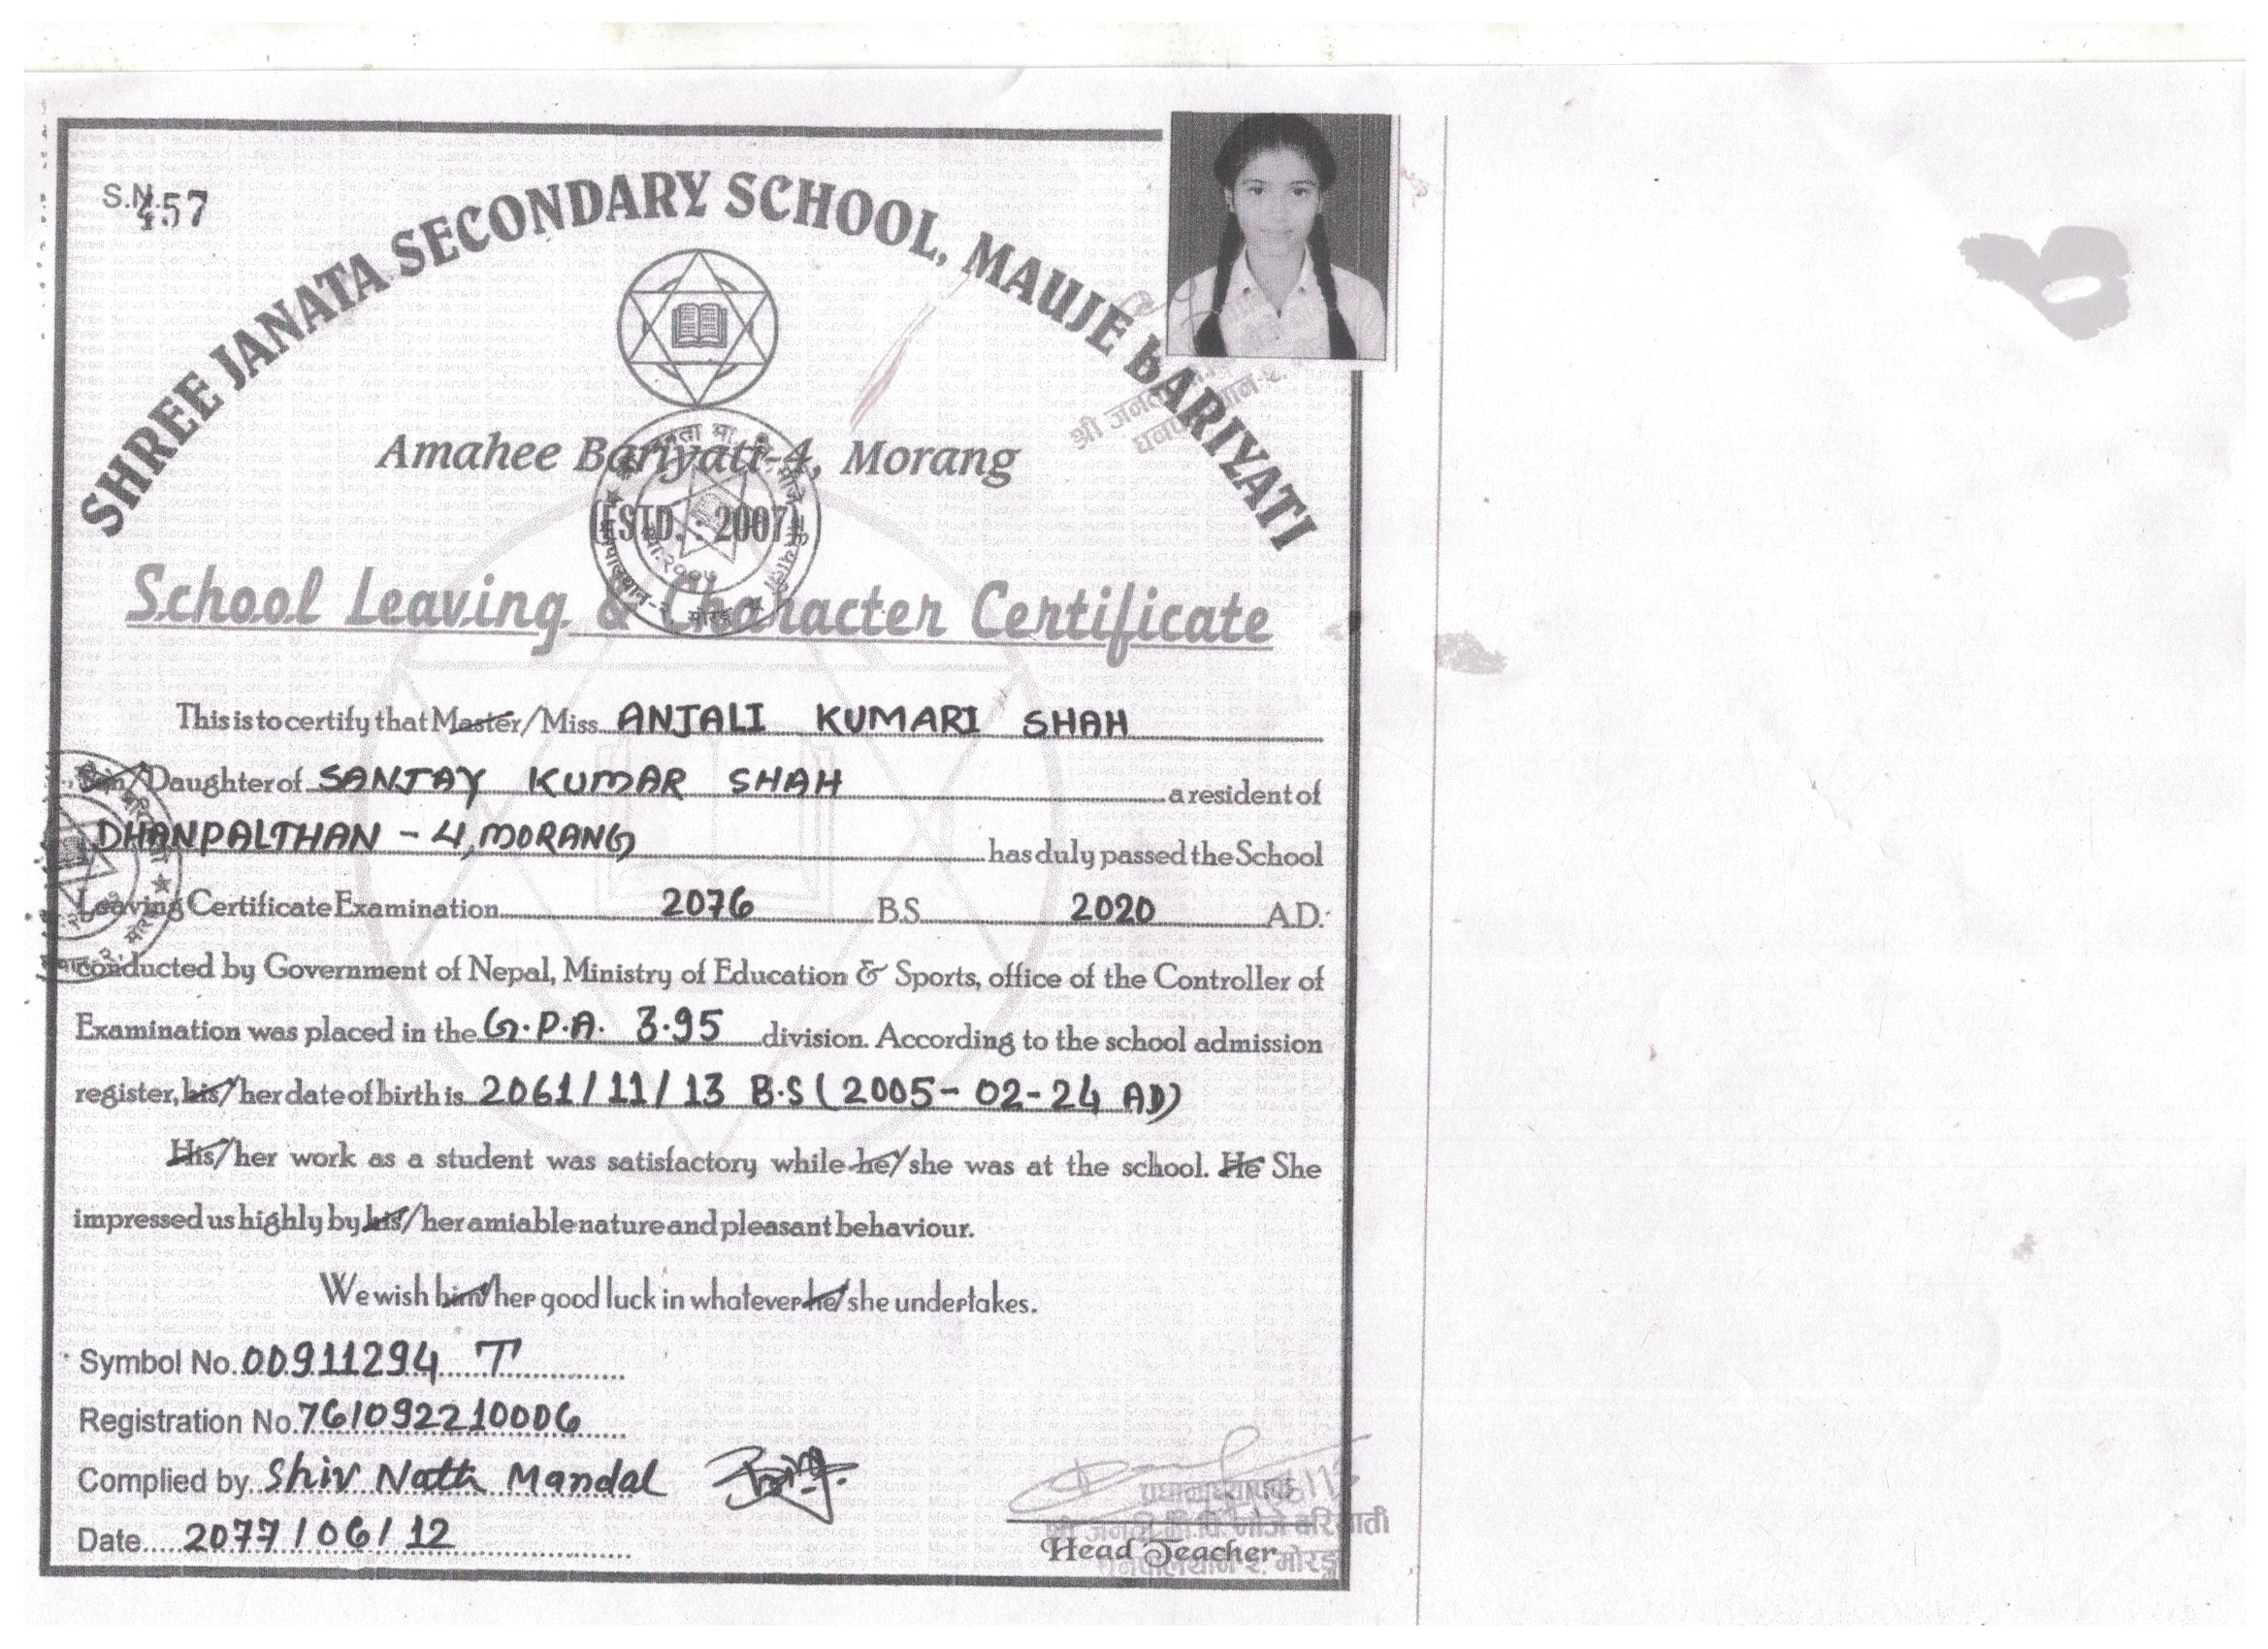 S.N. 457
SHREE JANATA SECONDARY SCHOOL, MAUJE BARIYATI
Amahee Bariyati-4, Morang
(ESTD. : 2007)
School Leaving & Character Certificate
This is to certify that Master/Miss ANJALI KUMARI SHAH
Son/Daughter of SANJAY KUMAR SHAH a resident of
DHANPALTHAN - 4, MORANG has duly passed the School
Leaving Certificate Examination 2076 B.S. 2020 A.D.
conducted by Government of Nepal, Ministry of Education & Sports, office of the Controller of
Examination was placed in the G.P.A. 3.95 division. According to the school admission
register, his/her date of birth is 2061/11/13 B.S (2005-02-24 AD)
His/her work as a student was satisfactory while he/she was at the school. He She
impressed us highly by his/her amiable nature and pleasant behaviour.
We wish him/her good luck in whatever he/she undertakes.
Symbol No. 00911294 T
Registration No. 761092210006
Complied by Shiv Nath Mandal
Date 2077/06/12
Head Teacher